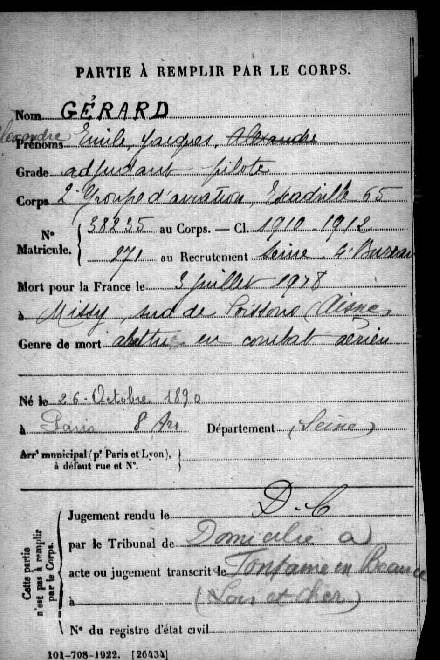 PARTIE À REMPLIR PAR LE CORPS.
Nom GÉRARD
Alexandre
Prénoms Emile, Jacques, Alexandre
Grade adjudant pilote
Corps 2e Groupe d'aviation, Escadrille 65
N° Matricule. 38235 au Corps. — Cl. 1910 - 1912
271 au Recrutement Seine 4e Bureau
Mort pour la France le 3 juillet 1918
à Missy, sud de Soissons (Aisne)
Genre de mort abattu en combat aérien
Né le 26 - Octobre 1890
à Paris 8 Arr Département (Seine)
Arrt municipal (pr Paris et Lyon), à défaut rue et N°.
Cette partie n'est pas à remplir par le Corps.
Jugement rendu le D.C
par le Tribunal de Domicilié à
acte ou jugement transcrit le Fontaine en Beauce
à (Loir et Cher)
N° du registre d'état civil
101-708-1922. [26434]